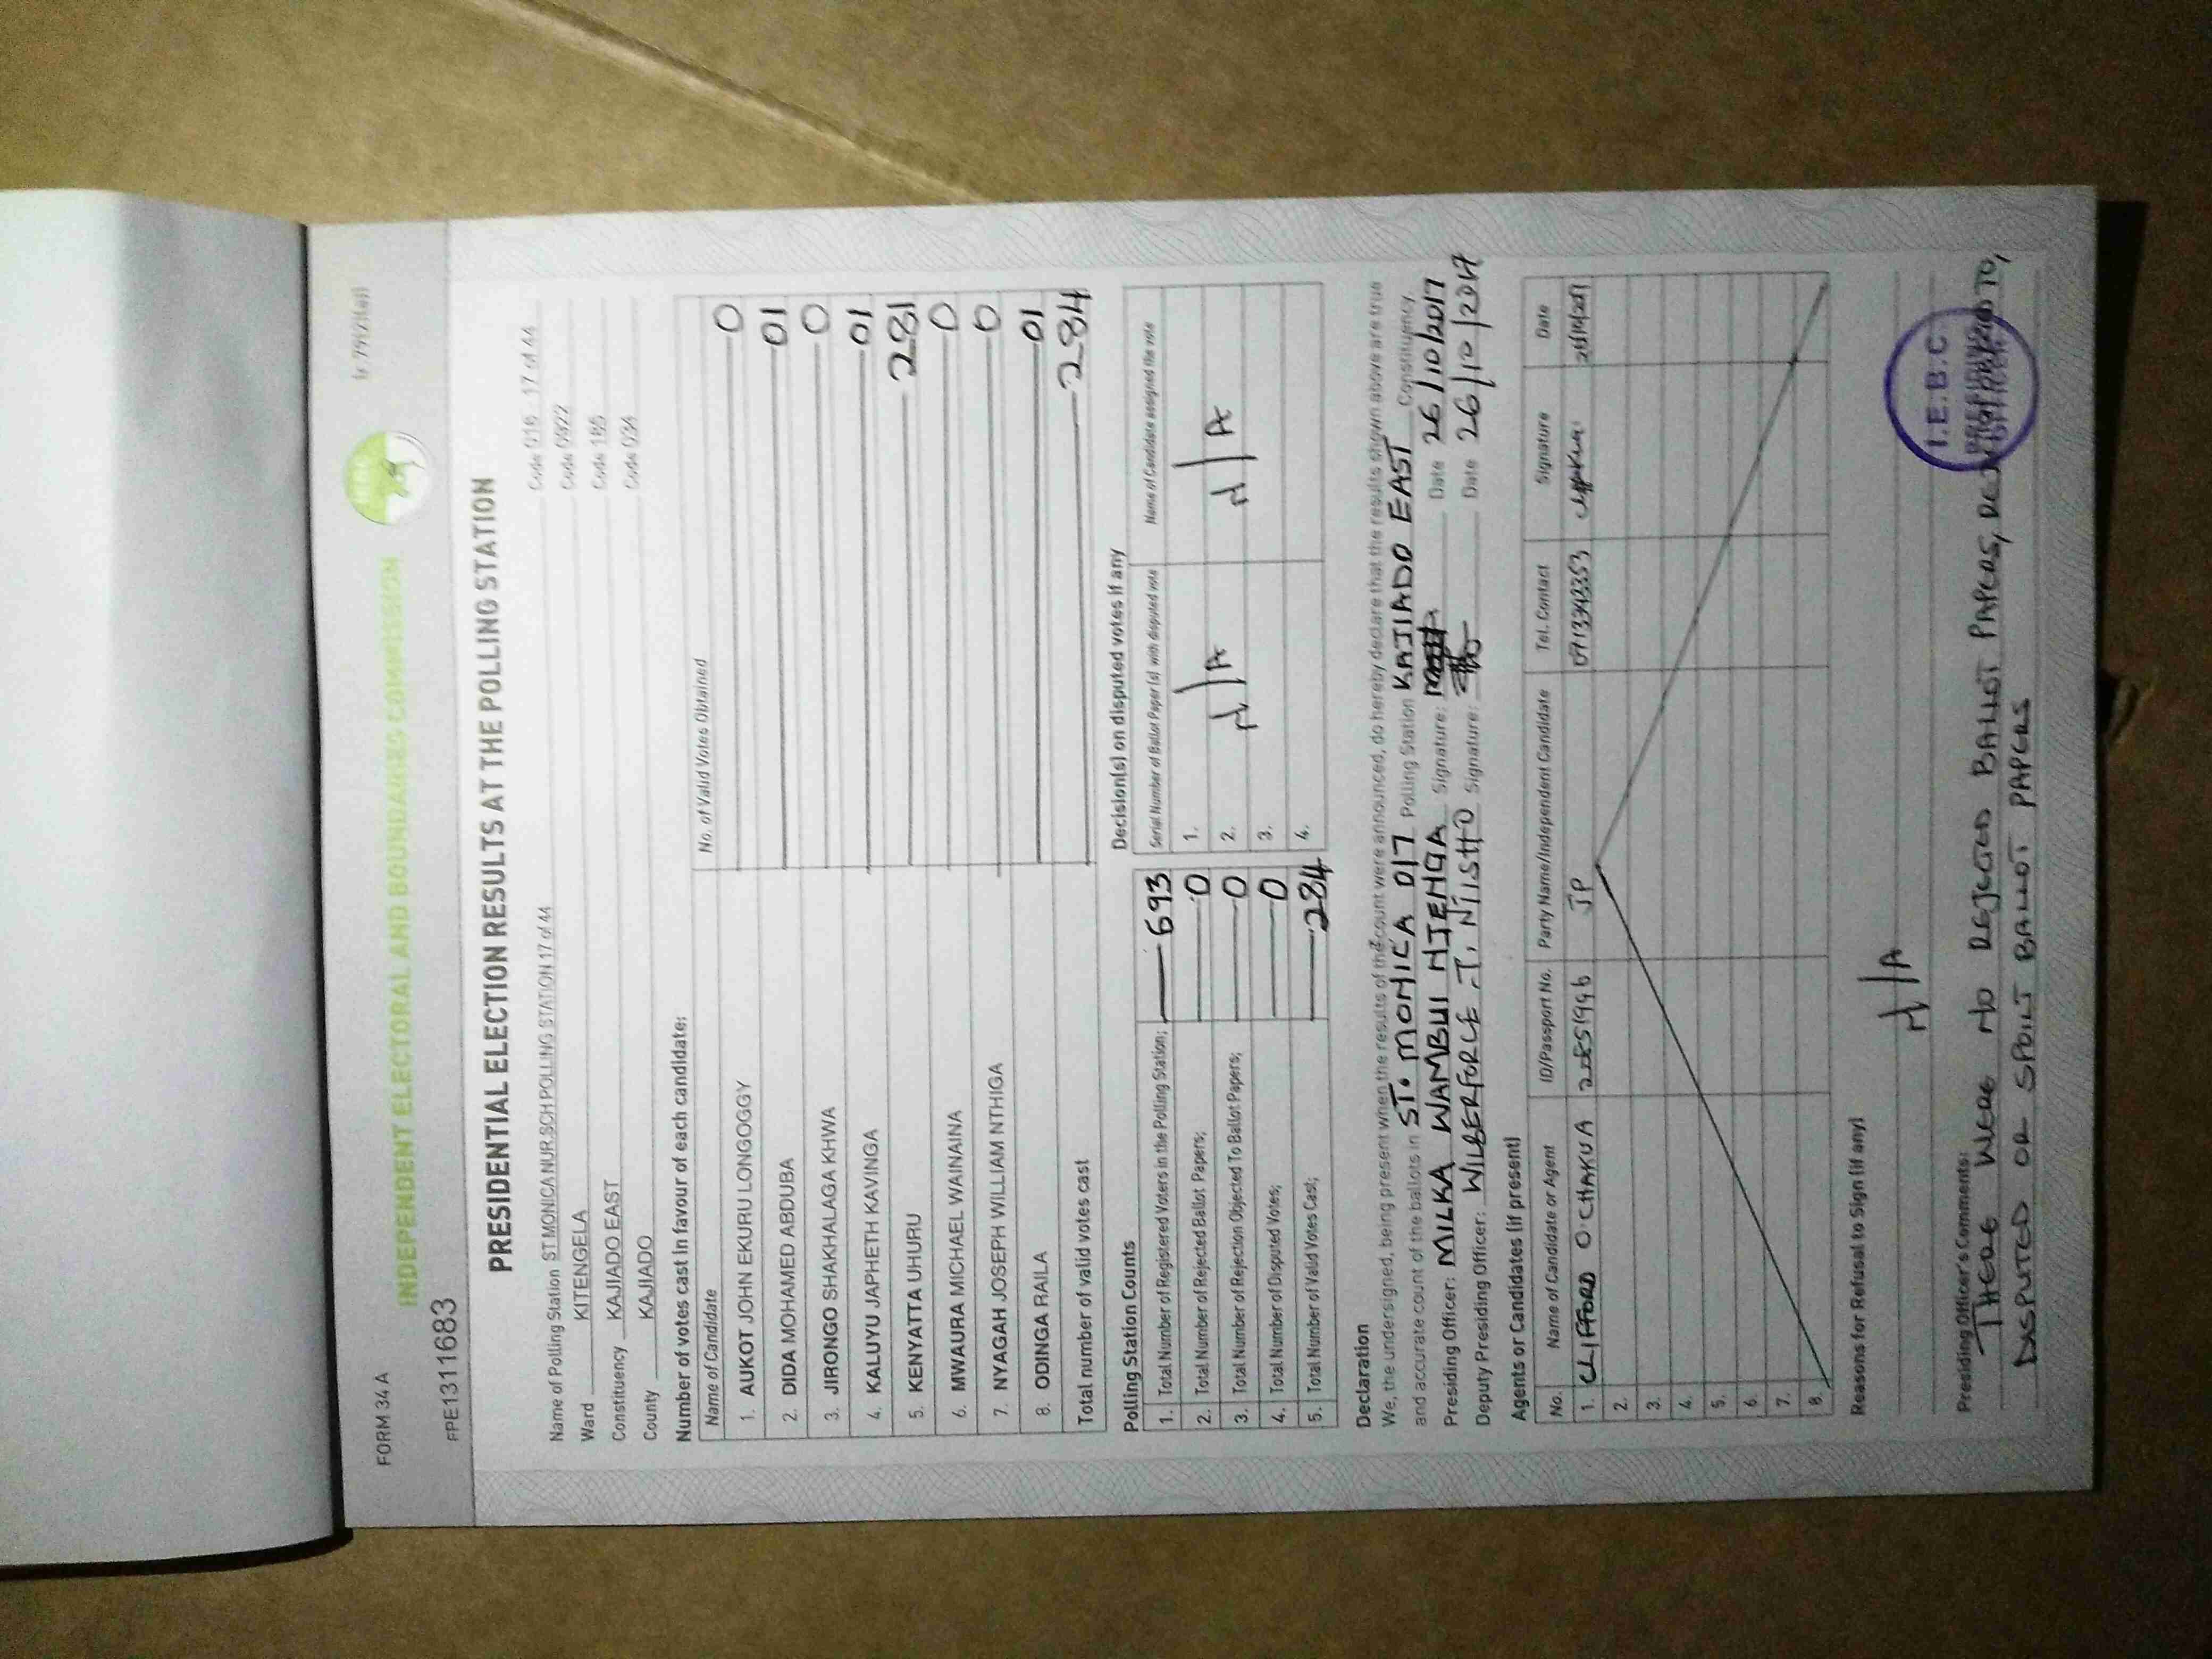 FORM 34 A
INDEPENDENT ELECTORAL AND BOUNDARIES COMMISSION
FPE1311683
PRESIDENTIAL ELECTION RESULTS AT THE POLLING STATION
Name of Polling Station ST MONICA NUR.SCH POLLING STATION 17 of 44 Code 016 17 of 44
Ward KITENGELA Code 0922
Constituency KAJIADO EAST Code 185
County KAJIADO Code 034
Number of votes cast in favour of each candidate:
Name of Candidate No. of Valid Votes Obtained
1. AUKOT JOHN EKURU LONGOGGY 0
2. DIDA MOHAMED ABDUBA 01
3. JIRONGO SHAKHALAGA KHWA 0
4. KALUYU JAPHETH KAVINGA 01
5. KENYATTA UHURU 281
6. MWAURA MICHAEL WAINAINA 0
7. NYAGAH JOSEPH WILLIAM NTHIGA 0
8. ODINGA RAILA 01
Total number of valid votes cast 284
Polling Station Counts
1. Total Number of Registered Voters in the Polling Station; 693
2. Total Number of Rejected Ballot Papers; 0
3. Total Number of Rejection Objected To Ballot Papers; 0
4. Total Number of Disputed Votes; 0
5. Total Number of Valid Votes Cast; 284
Decision(s) on disputed votes if any
Serial Number of Ballot Paper(s) with disputed vote Name of Candidate assigned the vote
1.
2. N/A N/A
3.
4.
Declaration
We, the undersigned, being present when the results of the count were announced, do hereby declare that the results shown above are true
and accurate count of the ballots in ST. MONICA 017 Polling Station KAJIADO EAST Constituency.
Presiding Officer: MILKA WAMBUI NJENGA Signature: Date 26/10/2017
Deputy Presiding Officer: WILBERFORCE .T. Signature: Date 26/10/2017
Agents or Candidates (if present)
No. Name of Candidate or Agent ID/Passport No. Party Name/Independent Candidate Tel. Contact Signature Date
1. CLIFFORD O. CHAKUA JP
2.
3.
4.
5.
6.
7.
8.
Reasons for Refusal to Sign (if any)
N/A
Presiding Officer's Comments:
THERE WERE NO REJECTED BALLOT PAPERS, TO,
DISPUTED OR SPOILT BALLOT PAPERS
I.E.B.C
PRESIDING
OFFICER